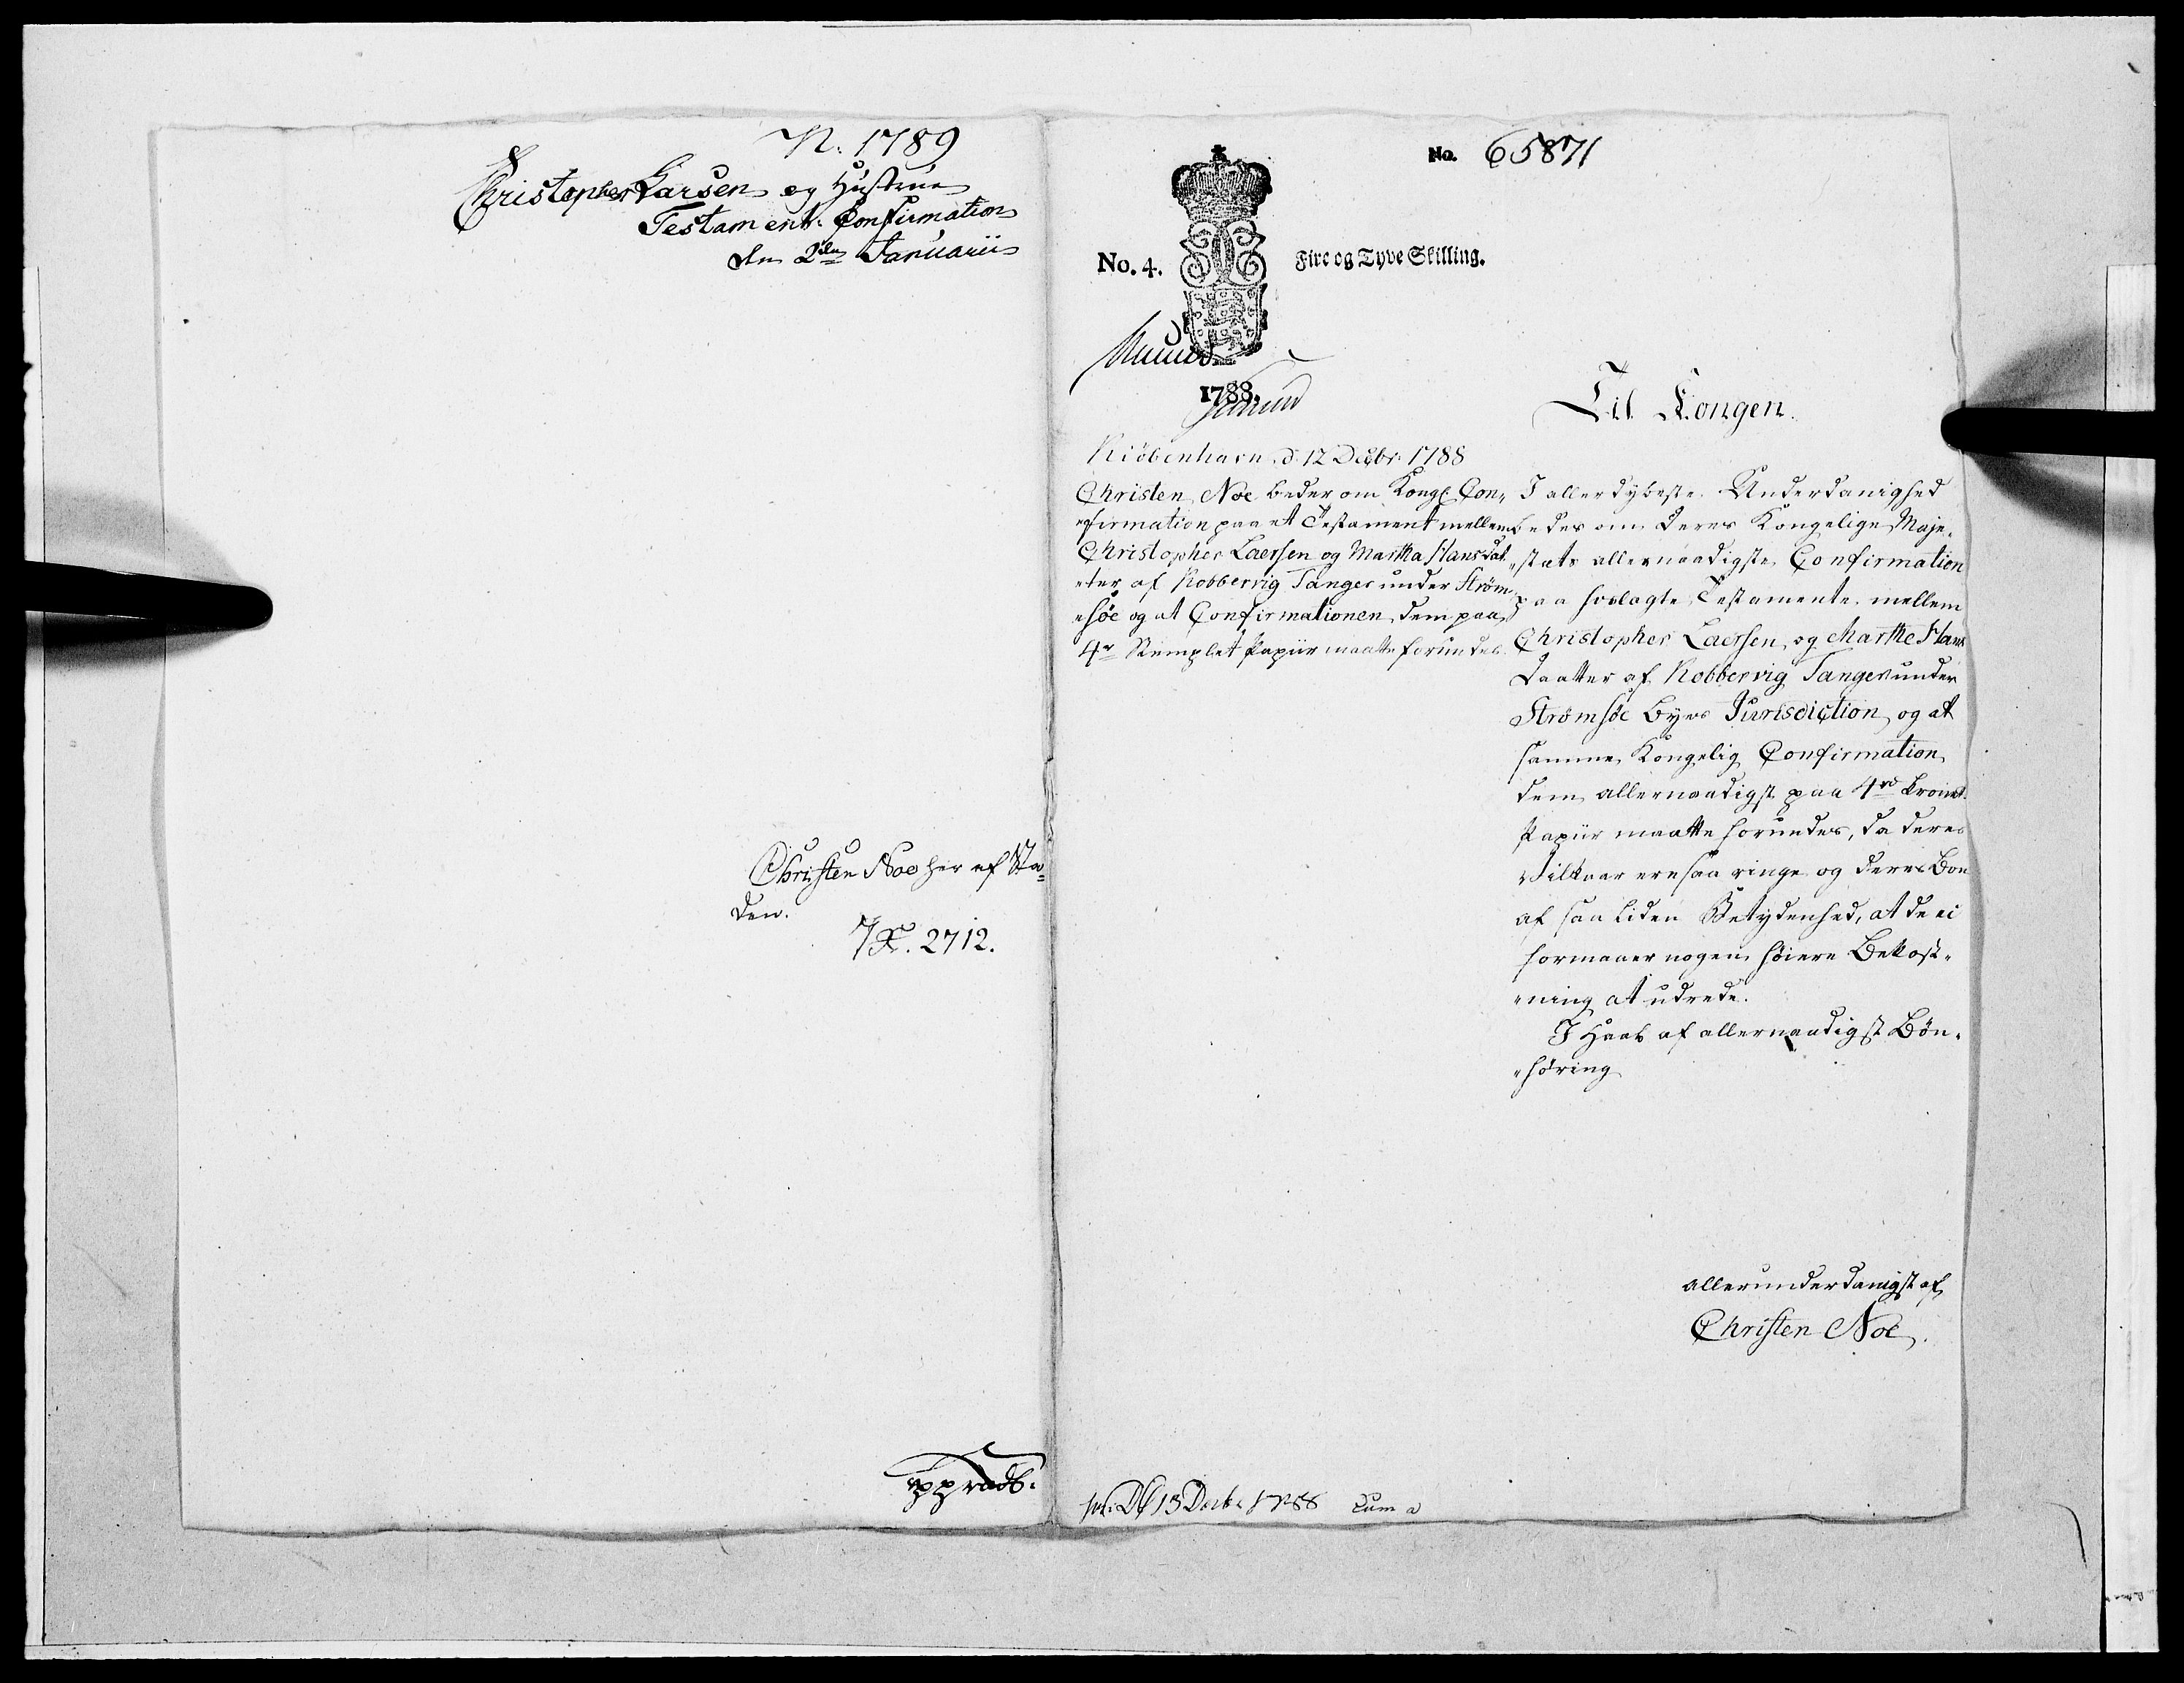 N. 1789
Christopher Larsen og Hustrue
Testament. Confirmation
den 2den Januarii
Christen Noe her af Sta=
den.
2712.
No. 65871
No. 4. Fire og Tyve Skilling.
1788.
Kiöbenhavn d. 12 Decbr. 1788
Christen Noe beder om Kongl. Con„
„firmation paa et Testament mellem
Christopher Laersen og Martha Hansdat„
„ter af Kobbervig Tangen under Ström„
„söe og at Confirmationen dem paa
4rd Stemplet Papiir maatte forundes.
Til Kongen.
I allerdybeste Underdanighed
bedes om Deres Kongelige Maje„
„stæts allernaadigste Confirmation
paa hoslagte Testamente mellem
Christopher Laersen og Marthe Hans
Daatter af Kobbervig Tangen under
Strömsöe Byes Jurisdiction, og at
samme Kongelig Confirmation
dem allernaadigst paa 4rd
Papiir maatte forundes, da deres
Vilkaar ere saa ringe og deres Boe
af saa liden Betydenhed, at de ei
formaaer nogen höiere Bekost„
„ning at udrede.
I Haab af allernaadigst Bön„
„höring
allerunderdanigst af
Christen Noe.
13 Decbr 1788